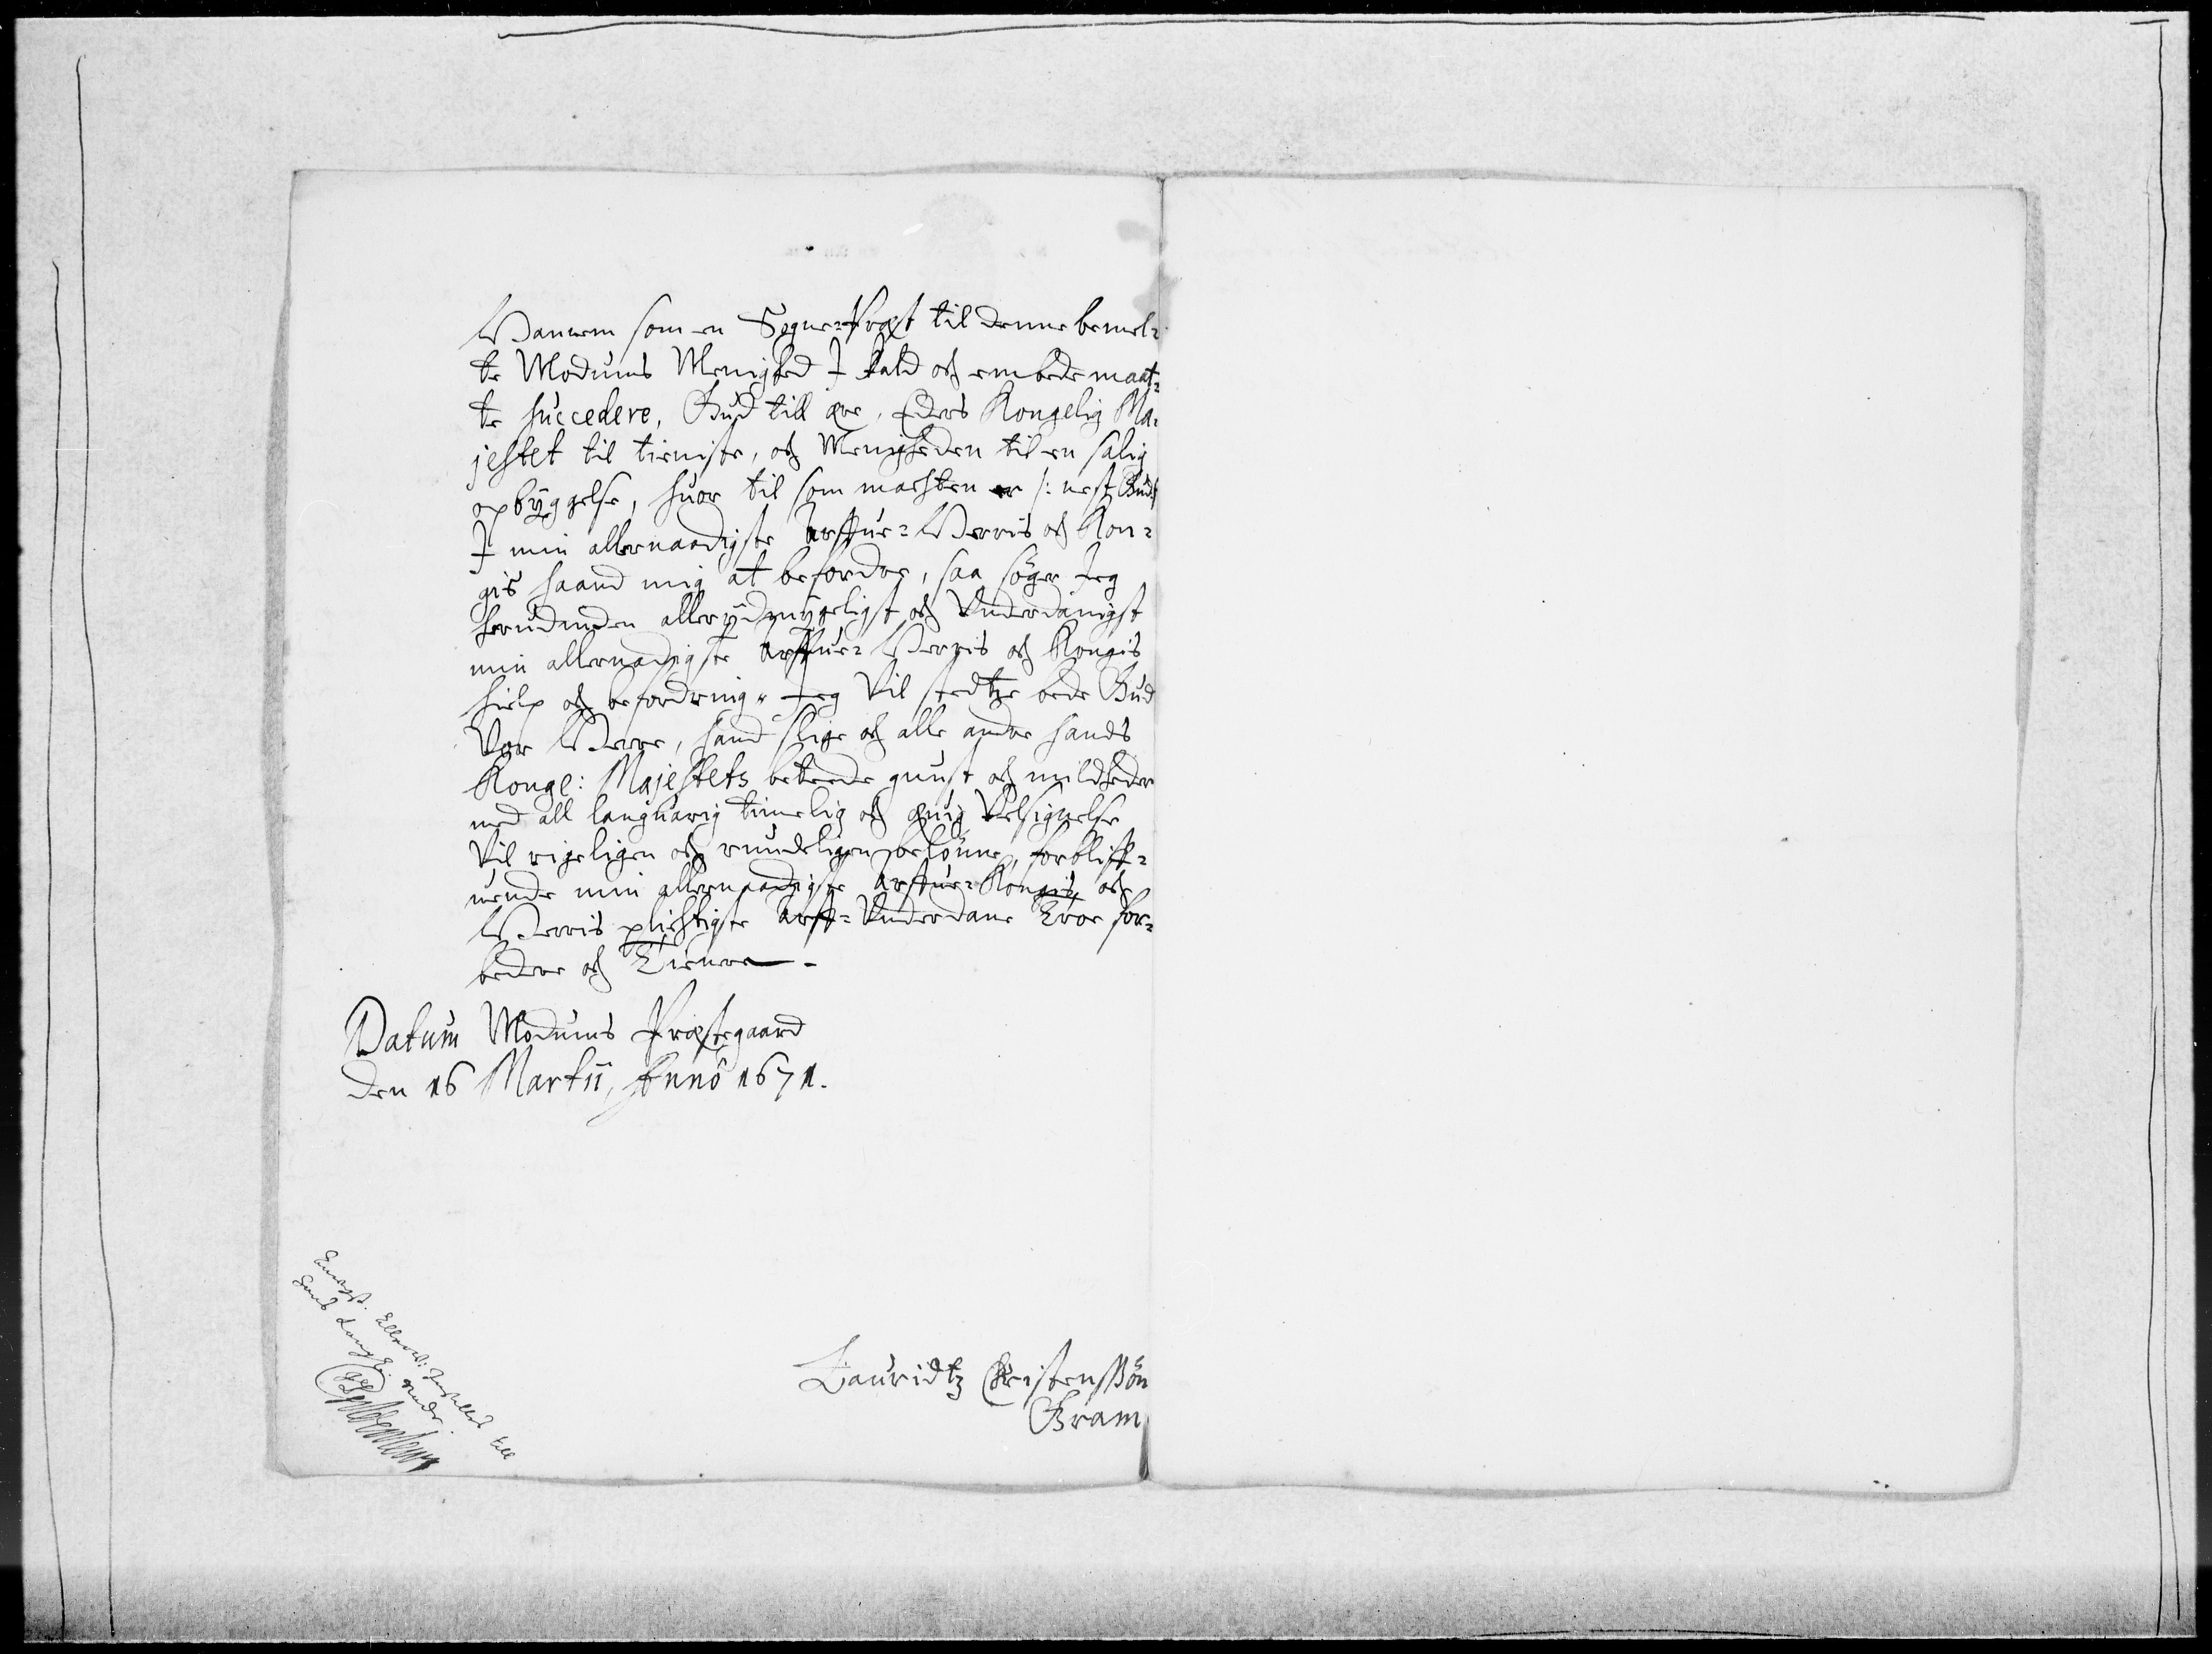 Hannem som en Sogne-Præst til denne bemel-
te Modums Menighed I kald och embede maat-
te succedere, Gud till ære, Eders Kongelig Ma-
jestet til tieniste, och Menigheden til en salig
opbyggelse, huor til som machten er /: nest Gud :/
I min allernaadigste Arffue-Herris och Kon-
gis haand mig at befordre, saa söger Jeg
herudinden allerydmygeligst och Vnderdanigst
min allernadigste Arffue-Herris och Kongis
hielp och befordring. Jeg Vil stedtze bede Gud
Vor Herre, hand slige och alle andre hands
Konge: Majestets beteede gunst och mildheder
med all languarig timelig och æuig Velsignelse
Vil rigeligen och rundeligen belönne, forbliff-
uende min allernaadigste Arffue-Kongis och
Herris plichtigste Arff-Vnderdane Troe for-
bedere och Tienere.
Datum Modums Præstegaard
den 16 Martii, Anno 1671.
Lauridtz Christenssön
Gram
till